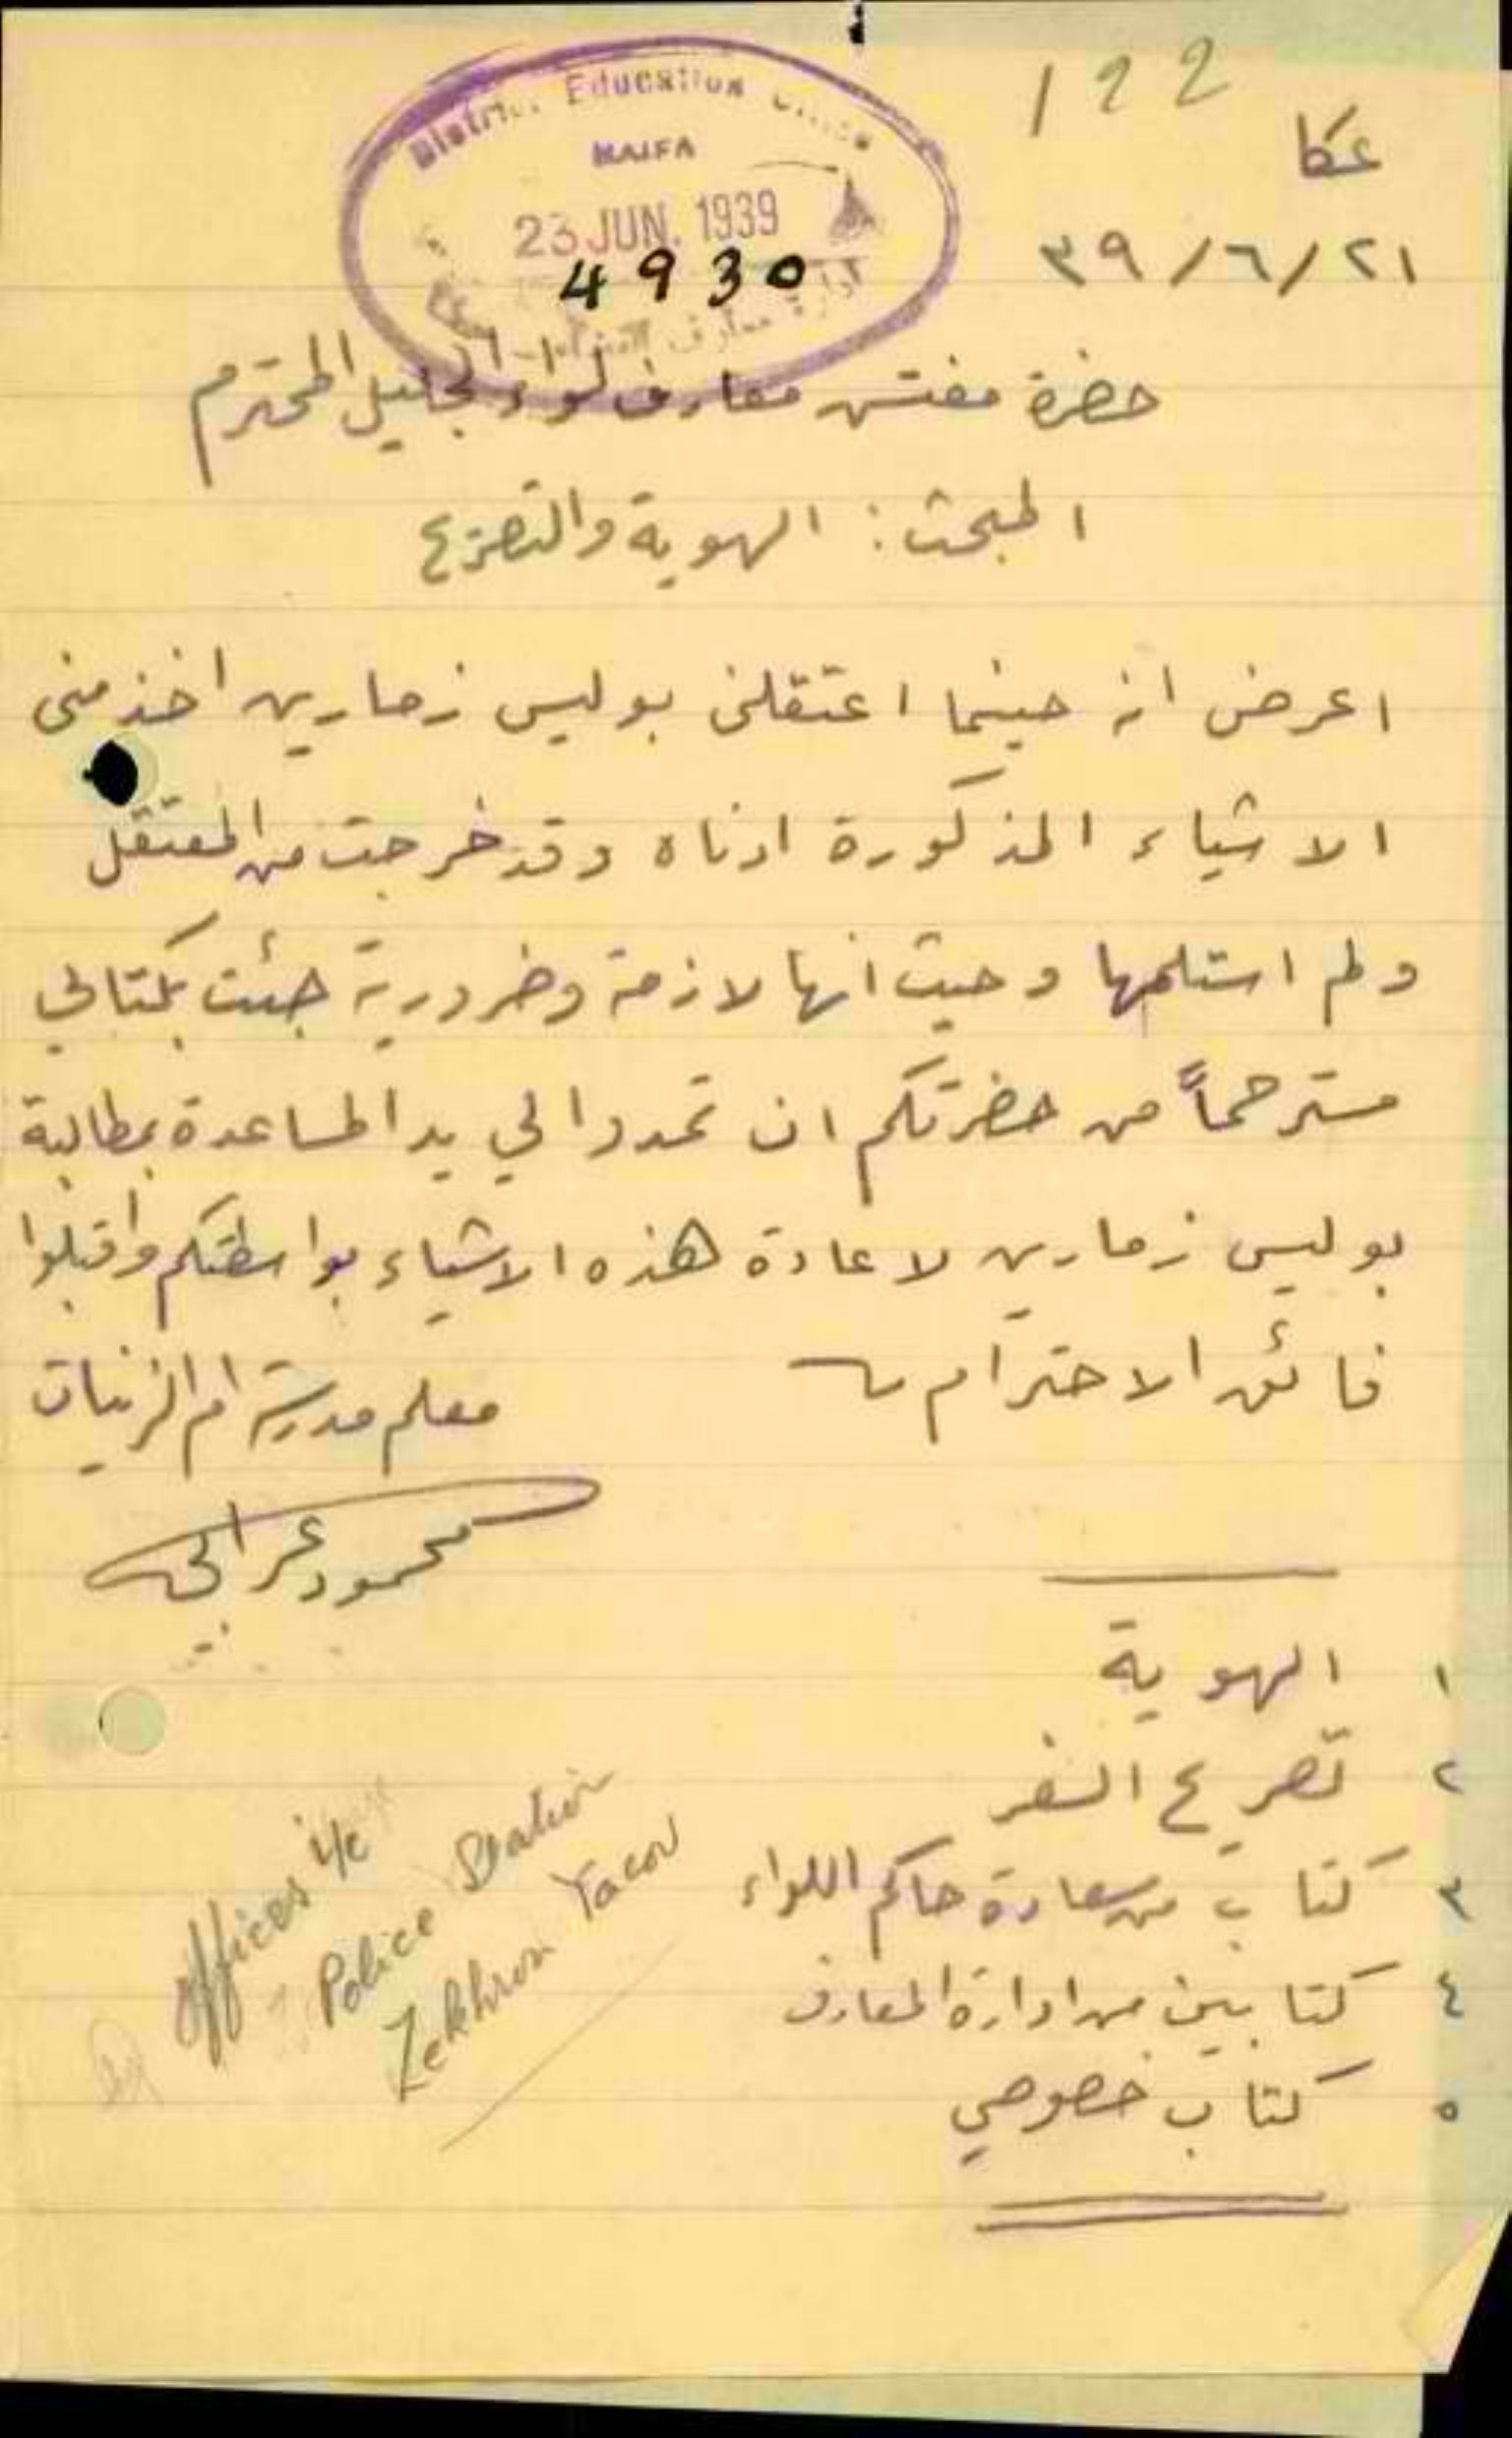 122
عكا
٢١/٦/٣٩
District Education Office
HAIFA
23 JUN. 1939
4930
حضرة مفتش معارف لواء الجليل المحترم
المبحث: الهوية والتصريح
اعرض انه حينما اعتقلني بوليس زمارين اخذ مني
الاشياء المذكورة ادناه وقد خرجت من المعتقل
ولم استلمها وحيث انها لازمة وضرورية جئت بكتابي
مسترحماً من حضرتكم ان تمدوا لي يد المساعدة بمطالبة
بوليس زمارين لاعادة هذه الاشياء بواسطتكم واقبلوا
فائق الاحترام
معلم مدرسة ام الزينات
محمود عرابي
١ الهوية
٢ تصريح السفر
٣ كتاب من سعادة حاكم اللواء
٤ كتابين من ادارة المعارف
٥ كتاب خصوصي
Officer i/c
Police Station
Zekhron Yacov